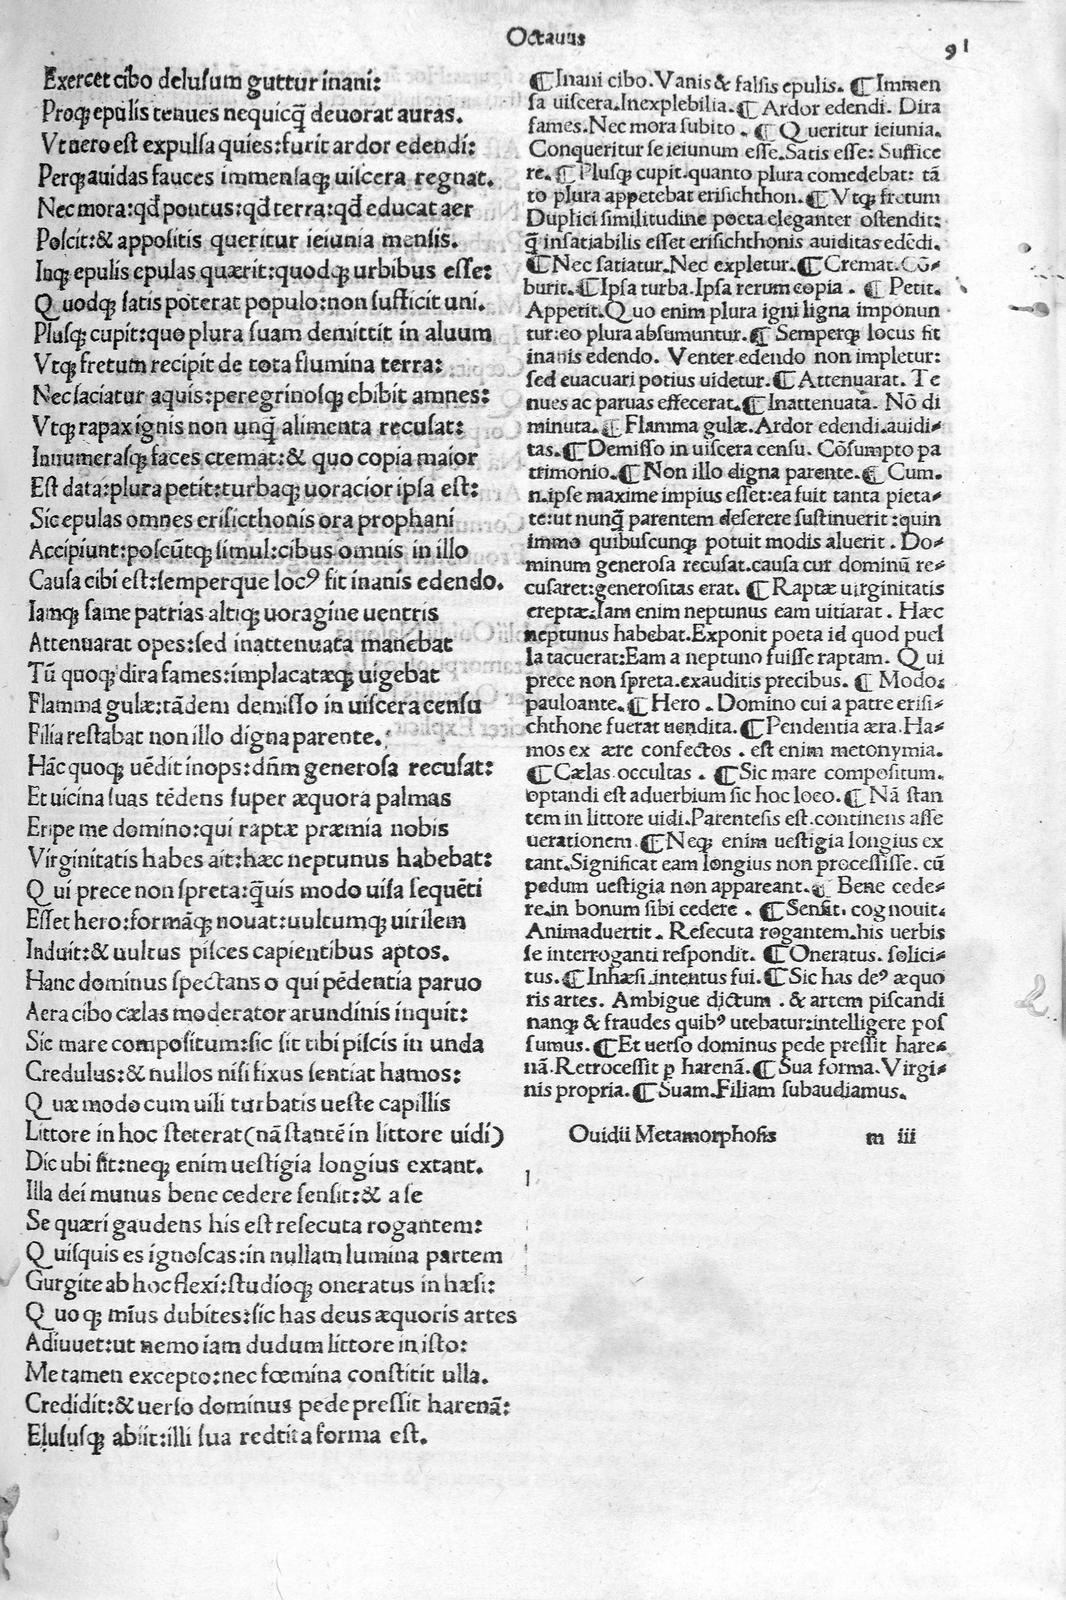 Octauus
91
Exercet cibo delusum guttur inani:
Proqꝫ epulis tenues nequicq̃ deuorat auras.
Vt uero est expulsa quies: furit ardor edendi:
Perqꝫ auidas fauces immensaqꝫ uiscera regnat.
Nec mora: qd̃ pontus: qd̃ terra: qd̃ educat aer
Poscit: & appositis queritur ieiunia mensis.
Inqꝫ epulis epulas quærit: quodqꝫ urbibus esse:
Quodqꝫ satis poterat populo: non sufficit uni.
Plusqꝫ cupit: quo plura suam demittit in aluum
Vtqꝫ fretum recipit de tota flumina terra:
Nec saciatur aquis: peregrinosqꝫ ebibit amnes:
Vtqꝫ rapax ignis non unq̃ alimenta recusat:
Innumerasqꝫ faces cremat: & quo copia maior
Est data: plura petit: turbaqꝫ uoracior ipsa est:
Sic epulas omnes erisicthonis ora prophani
Accipiunt: poscũtqꝫ simul: cibus omnis in illo
Causa cibi est: semperque locꝰ fit inanis edendo.
Iamqꝫ fame patrias altiqꝫ uoragine uentris
Attenuarat opes: sed inattenuata manebat
Tũ quoqꝫ dira fames: implacatæqꝫ uigebat
Flamma gulæ: tãdem demisso in uiscera censu
Filia restabat non illo digna parente.
Hãc quoqꝫ uẽdit inops: dñm generosa recusat:
Et uicina suas tẽdens super æquora palmas
Eripe me domino: qui raptæ præmia nobis
Virginitatis habes ait: hæc neptunus habebat:
Qui prece non spreta: q̃uis modo uisa sequẽti
Esset hero: formãqꝫ nouat: uultumqꝫ uirilem
Induit: & uultus pisces capientibus aptos.
Hanc dominus spectans o qui pẽdentia paruo
Aera cibo cælas moderator arundinis inquit:
Sic mare compositum: sic sit tibi piscis in unda
Credulus: & nullos nisi fixus sentiat hamos:
Quæ modo cum uili turbatis ueste capillis
Littore in hoc steterat (nã stantẽ in littore uidi)
Dic ubi sit: neqꝫ enim uestigia longius extant.
Illa dei munus bene cedere sensit: & a se
Se quæri gaudens his est resecuta rogantem:
Quisquis es ignoscas: in nullam lumina partem
Gurgite ab hoc flexi: studioqꝫ oneratus in hæsi:
Quo qꝫ mĩus dubites: sic has deus æquoris artes
Adiuuet: ut nemo iam dudum littore in isto:
Me tamen excepto: nec fœmina constitit ulla.
Credidit: & uerso dominus pede pressit harenã:
Elususqꝫ abiit: illi sua reddita forma est.
¶ Inani cibo. Vanis & falsis epulis. ¶ Immen
sa uiscera. Inexplebilia. ¶ Ardor edendi. Dira
fames. Nec mora subito. ¶ Queritur ieiunia.
Conqueritur se ieiunum esse. Satis esse: Suffice
re. ¶ Plusqꝫ cupit. quanto plura comedebat: tã
to plura appetebat erisichthon. ¶ Vtqꝫ fretum
Duplici similitudine poeta eleganter ostendit:
q̃ insatiabilis esset erisichthonis auiditas edẽdi.
¶ Nec satiatur. Nec expletur. ¶ Cremat. Cõ-
burit. ¶ Ipsa turba. Ipsa rerum copia. ¶ Petit.
Appetit. Quo enim plura igni ligna imponun
tur: eo plura absumuntur. ¶ Semperqꝫ locus fit
inanis edendo. Venter edendo non impletur:
sed euacuari potius uidetur. ¶ Attenuarat. Te
nues ac paruas effecerat. ¶ Inattenuata. Nõ di
minuta. ¶ Flamma gulæ. Ardor edendi. auidi-
tas. ¶ Demisso in uiscera censu. Cõsumpto pa
trimonio. ¶ Non illo digna parente. ¶ Cum.
n. ipse maxime impius esset: ea fuit tanta pieta-
te: ut nunq̃ parentem deserere sustinuerit: quin
immo quibuscunqꝫ potuit modis aluerit. Do-
minum generosa recusat. causa cur dominũ re-
cusaret: generositas erat. ¶ Raptæ uirginitatis
ereptæ. Iam enim neptunus eam uitiarat. Hæc
neptunus habebat. Exponit poeta id quod puel
la tacuerat: Eam a neptuno fuisse raptam. Qui
prece non spreta. exauditis precibus. ¶ Modo:
pauloante. ¶ Hero. Domino cui a patre erisi-
chthone fuerat uendita. ¶ Pendentia æra. Ha-
mos ex ære confectos. est enim metonymia.
¶ Cælas occultas. ¶ Sic mare compositum.
optandi est aduerbium sic hoc loco. ¶ Nã stan
tem in littore uidi. Parentesis est. continens asse
uerationem. ¶ Neqꝫ enim uestigia longius ex
tant. Significat eam longius non processisse. cũ
pedum uestigia non appareant. ¶ Bene cede-
re. in bonum sibi cedere. ¶ Sensit. cognouit.
Animaduertit. Resecuta rogantem. his uerbis
se interroganti respondit. ¶ Oneratus. solici-
tus. ¶ Inhæsi. intentus fui. ¶ Sic has deꝰ æquo
ris artes. Ambigue dictum. & artem piscandi
nanqꝫ & fraudes quibꝰ utebatur: intelligere pos
sumus. ¶ Et uerso dominus pede pressit hare-
nã. Retrocessit ꝑ harenã. ¶ Sua forma. Virgi-
nis propria. ¶ Suam. Filiam subaudiamus.
Ouidii Metamorphosis m iii